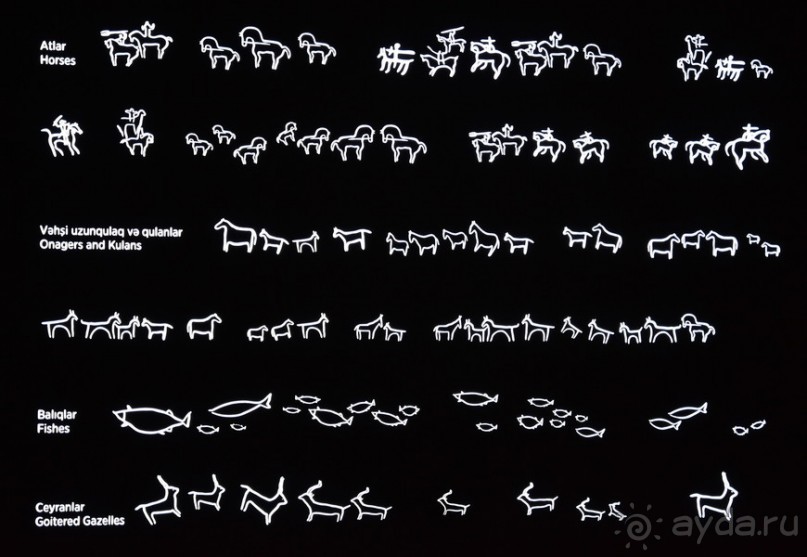 Atlar
Horses
Vəhşi uzunqulaq və qulanlar
Onagers and Kulans
Balıqlar
Fishes
Ceyranlar
Goitered Gazelles
ayda.ru